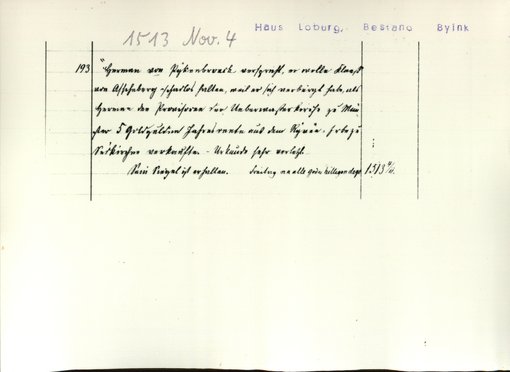 Haus Loburg, Bestand Byink
1513 Nov. 4
193 "Herman von Pykenbroock verspricht, er wolle Klaus
von Asscheberg schadlos halten, weil er sich verbürgt habe, als
Herman den Provisoren der Ueberwasserkirche zu Mün-
ster 5 Goldgulden Jahresrente aus dem Erbe zu
Seikirchen verkaufte. - Urkunde sehr verletzt.
Sein Siegel ist erhalten. Freitag na alle goder hilligen dage 1513 4/11.